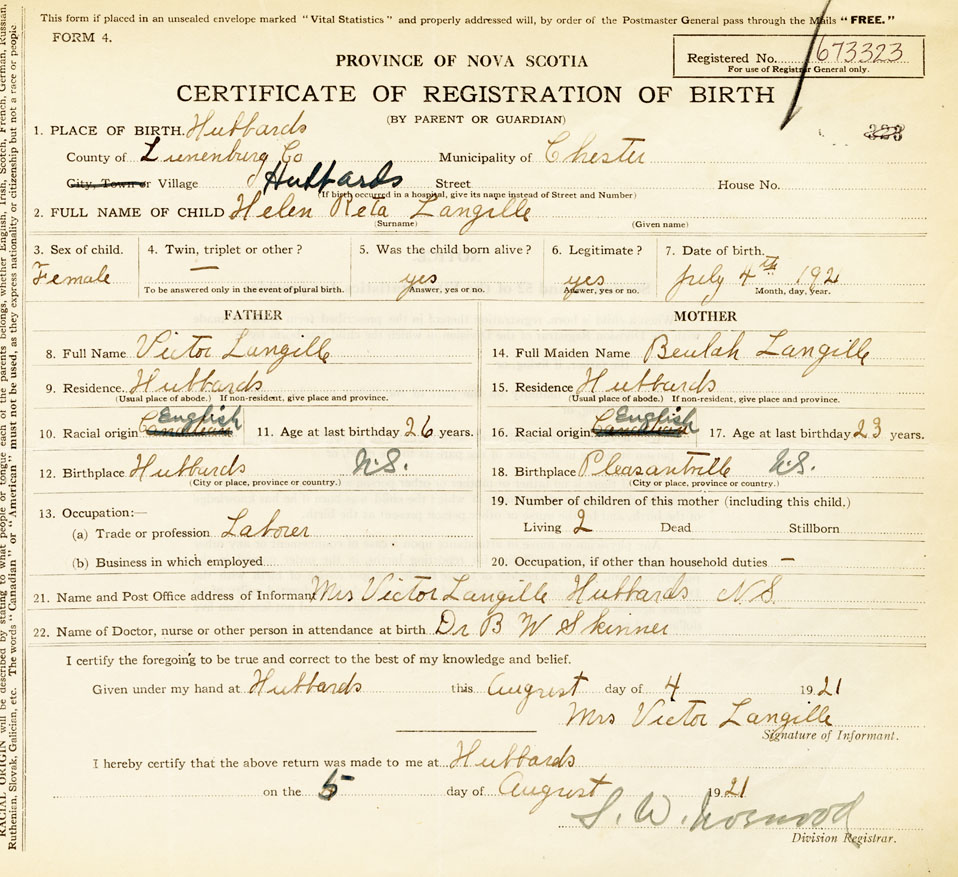 This form if placed in an unsealed envelope marked "Vital Statistics" and properly addressed will, by order of the Postmaster General pass through the Mails "FREE."
FORM 4.
Registered No. 673323
For use of Registrar General only.
PROVINCE OF NOVA SCOTIA
CERTIFICATE OF REGISTRATION OF BIRTH
(BY PARENT OR GUARDIAN)
323
1. PLACE OF BIRTH. Hubbards
County of Lunenburg Co Municipality of Chester
City, Town or Village Hubbards Street House No.
(If birth occurred in a hospital, give its name instead of Street and Number)
2. FULL NAME OF CHILD Helen Reta Langille
(Surname) (Given name)
3. Sex of child. 4. Twin, triplet or other? 5. Was the child born alive? 6. Legitimate? 7. Date of birth.
Female — yes yes July 4th 1921
To be answered only in the event of plural birth. Answer, yes or no. Answer, yes or no. Month, day, year.
FATHER MOTHER
8. Full Name Victor Langille 14. Full Maiden Name Beulah Langille
9. Residence. Hubbards 15. Residence Hubbards
(Usual place of abode.) If non-resident, give place and province. (Usual place of abode.) If non-resident, give place and province.
10. Racial origin English 11. Age at last birthday 26 years. 16. Racial origin English 17. Age at last birthday 23 years.
12. Birthplace Hubbards N.S. 18. Birthplace Pleasantville N.S.
(City or place, province or country.) (City or place, province or country.)
13. Occupation:— 19. Number of children of this mother (including this child.)
(a) Trade or profession Laborer Living 2 Dead Stillborn
(b) Business in which employed 20. Occupation, if other than household duties —
21. Name and Post Office address of Informant Mrs Victor Langille Hubbards N.S.
22. Name of Doctor, nurse or other person in attendance at birth Dr B W Skinner
I certify the foregoing to be true and correct to the best of my knowledge and belief.
Given under my hand at Hubbards this Augrest day of 4 1921
Mrs Victor Langille
Signature of Informant.
I hereby certify that the above return was made to me at Hubbards
on the 5 day of Augrest 1921
S. W. Norwood
Division Registrar.
RACIAL ORIGIN will be described by stating to what people or tongue each of the parents belongs, whether English, Irish, Scotch, French, German, Russian,
Ruthenian, Slovak, Galician, etc. The words "Canadian" or "American" must not be used, as they express nationality or citizenship but not a race or people